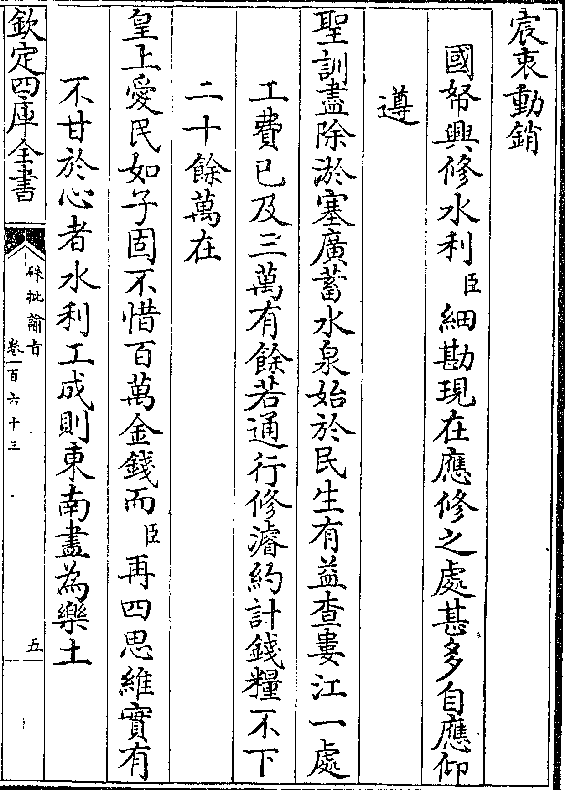 宸衷動銷
國帑興修水利臣細勘現在應修之處甚多自應仰
遵
聖訓盡除淤塞廣蓄水泉始於民生有益查婁江一處
工費已及三萬有餘若通行修濬約計錢糧不下
二十餘萬在
皇上愛民如子固不惜百萬金錢而臣再四思維實有
不甘於心者水利工成則東南盡為樂土
欽定四庫全書
硃批諭旨
卷一百六十三
五